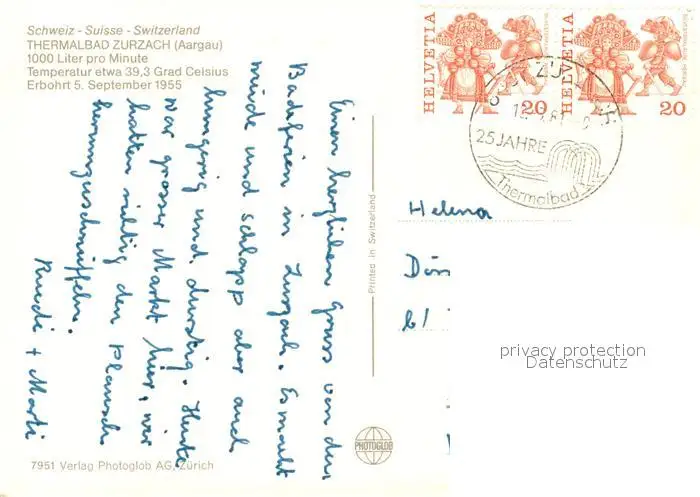 Schweiz - Suisse - Switzerland
THERMALBAD ZURZACH (Aargau)
1000 Liter pro Minute
Temperatur etwa 39,3 Grad Celsius
Erbohrt 5. September 1955
Einen herzlichen Gruss von den
Badeferien in Zurzach. Es macht
müde und schlapp aber auch
hungrig und durstig. Heute
war grosser Markt hier, wir
hatten richtig den Plausch
herumzuschnüffeln.
Ruedi + Marti
Printed in Switzerland
HELVETIA
20
HELVETIA
20
25 JAHRE
Thermalbad
Helena
privacy protection
Datenschutz
PHOTOGLOB
7951 Verlag Photoglob AG, Zürich